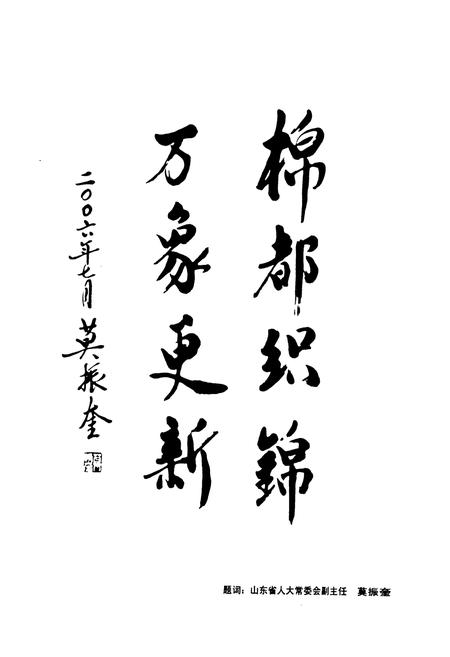 棉都织錦
万象更新
二〇〇六年七月 莫振奎
题词：山东省人大常委会副主任 莫振奎